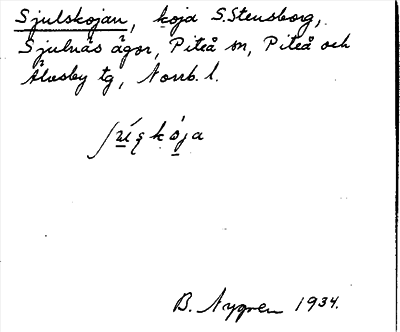 Sjulskojan, koja S. Stensborg,
Sjulnäs ägor, Piteå sn, Piteå och
Älvsby tg, Norrb. l.
B. Nygren 1934.